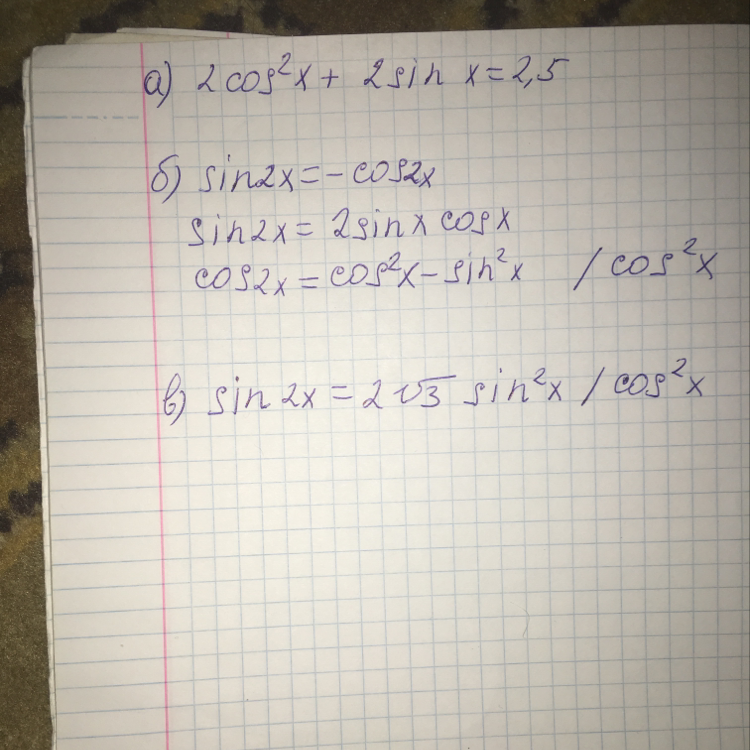 а) 2cos²x + 2sin x = 2,5
б) sin2x = -cos2x
sin2x = 2sinx cosx
cos2x = cos²x - sin²x / cos²x
в) sin 2x = 2√3 sin²x / cos²x